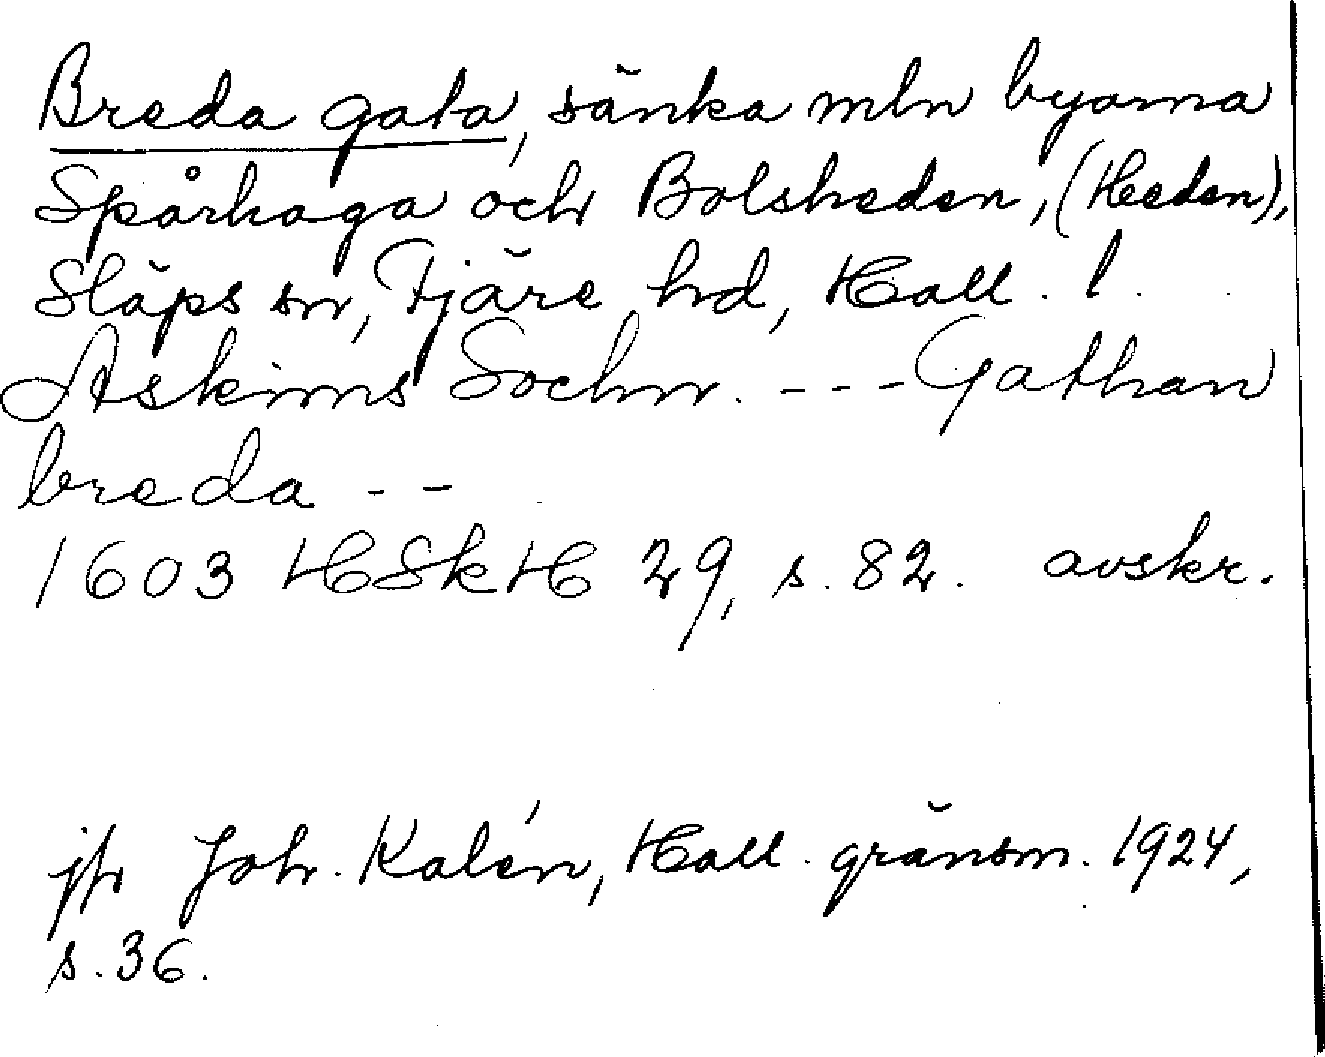 Breda gata, sänka mln byarna
Spårhaga och Bolsheden, (Heden),
Släps sn, Fjäre hd, Hall. l.
Askims Sochn. --- Gathan
breda --
1603 HSkH 29, s. 82. avskr.
jfr Joh. Kalén, Hall. gränsm. 1924,
s. 36.